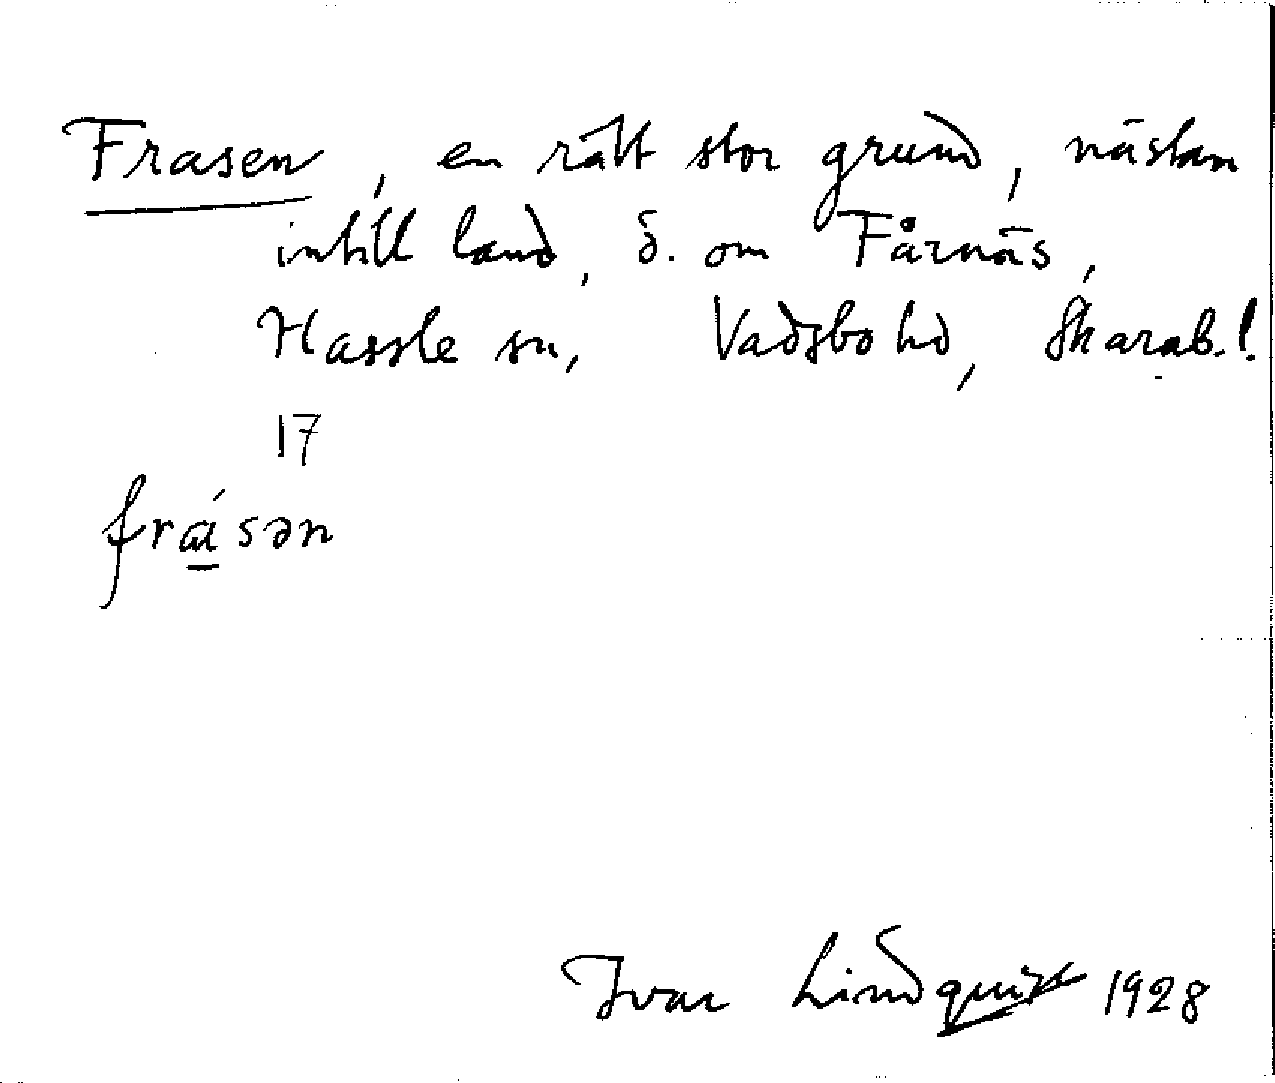 Frasen, en rätt stor grund, nästan
intill land, ö. om Fårnäs,
Hassle sn, Vadsbo hd, Skarab. l.
17
frásən
Ivar Lindquist 1928